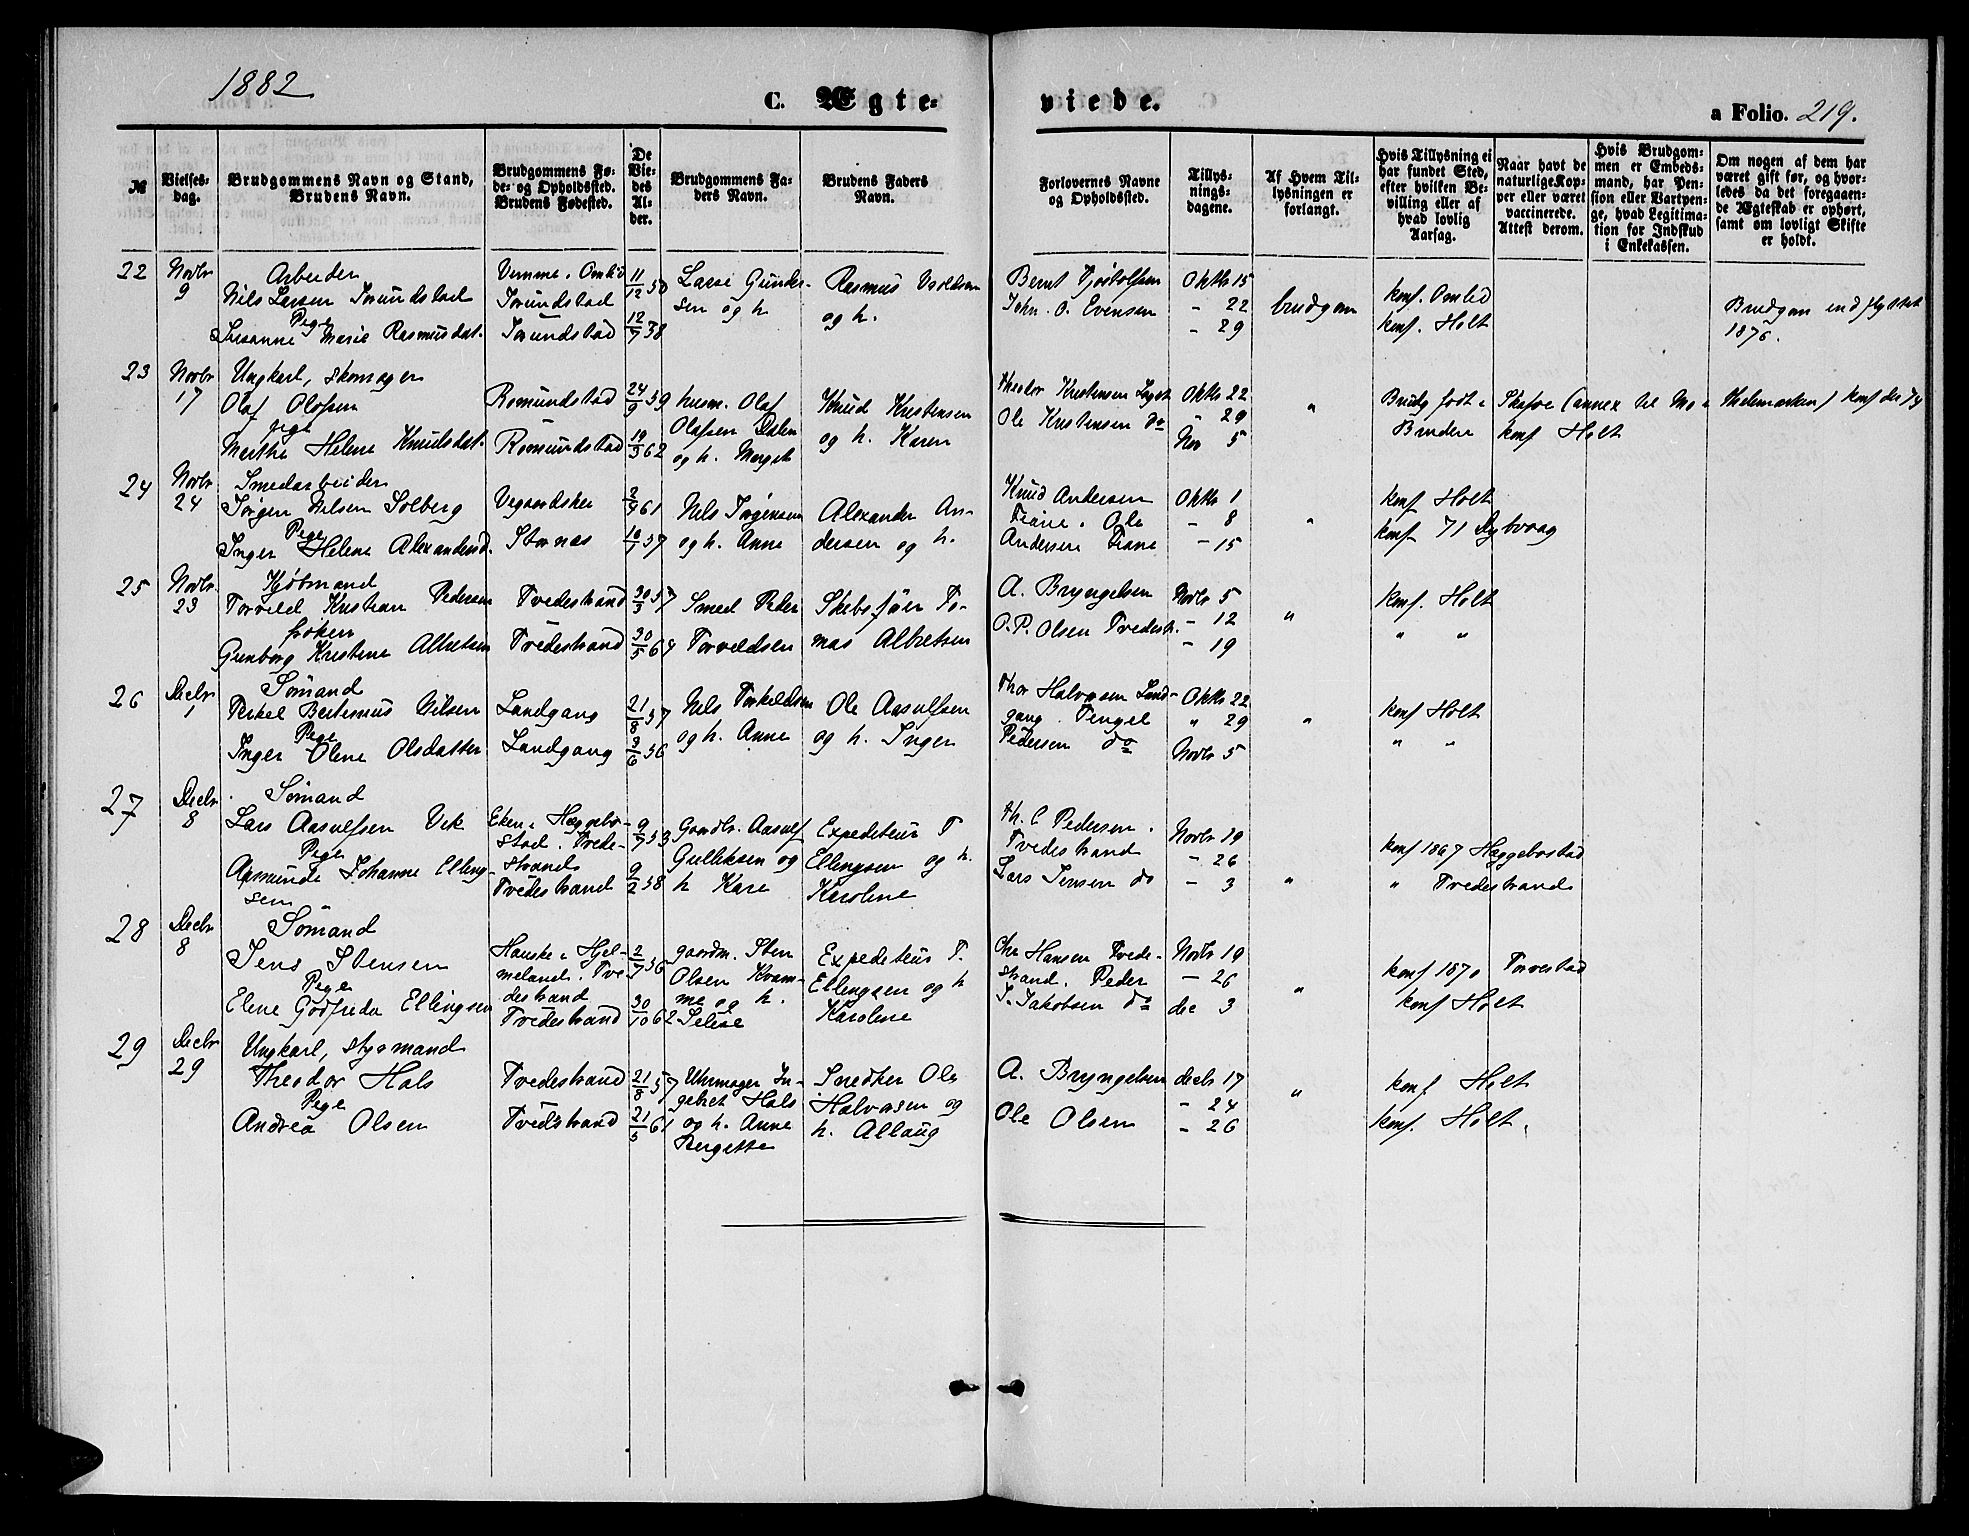 1882
C. Ægte-
viede.
a Folio. 219.
№
Vielses-
dag.
Brudgommens Navn og Stand,
Brudens Navn.
Brudgommens Fø-
de- og Opholdssted.
Brudens Fødested.
De
Vie-
des
Al-
der.
Brudgommens Fa-
ders Navn.
Brudens Faders
Navn.
Forlovernes Navne
og Opholdssted.
Tillys-
nings-
dagene.
Af Hvem Til-
lysningen er
forlangt.
Hvis Tillysning ei
har fundet Sted,
efter hvilken Be-
villing eller af
hvad lovlig
Aarsag.
Naar havt de
naturlige Kop-
per eller været
vaccinerede.
Attest derom.
Hvis Brudgom-
men er Embeds-
mand, har Pen-
sion eller Vartpen-
ge, hvad Legitima-
tion for Indskud
i Enkekassen.
Om nogen af dem har
været gift før, og hvor-
ledes da det foregaaen-
de Ægteskab er ophørt,
samt om lovligt Skifte
er holdt.
22
Novbr
9
Arbeider
Nils Larsen Jorundstad
Pige
Susanne Marie Rasmusdat.
Omlid
Jorundstad
Jorundstad
11/12 50
12/7 38
Lars Gunder-
sen og h
Rasmus
og h.
Bernt
John. O. Evensen
Oktbr 15
- 22
- 29
brudgom
konf. Omlid
konf. Holt
Brudgom indflyttet
1876.
23
Novbr
17
Ungkarl, skomager
Olaf Olofsen
pige
Marthe Helene Knudsdat.
Romundstad
Romundstad
24/9 59
19/3 62
husm. Olaf
Olofsen Dalen
og h. Margit
Knud Kristensen
og h. Karen
Kristensen
Ole Kristensen do
Oktbr 22
" 29
Nov 5
"
Brudg født i Skafse (annex til Mo i Thelemarken) konf der 74
Bruden konf Holt
24
Novbr
24
Smedarbeider
Jørgen Nilsen Solberg
Pige
Inger Helene Alexandersd.
Vegaardshei
Stornes
2/9 61
10/7 57
Nils Jørgensen
og h. Anne
Alexander An-
dersen og h.
Knud Andersen
Fiane. Ole
Andersen Fiane
Oktbr 1
- 8
- 15
"
konf Holt
konf 71 Dybvaag
25
Novbr.
23
Kjøbmand
Torvild Kristian Pedersen
frøken
Gunborg Kristine Albretsen
Tvedestrand
Tvedestrand
30/3 57
30/5 64
Smed Peder
Torvildsen
Skibsfører To-
mas Albretsen
A. Bryngelsen
O. P. Olsen Tvedestr.
Novbr 5
- 12
- 19
"
konf. Holt
" "
26
Decbr
1
Sømand
Terkel Bertinius Nilsen
Pige
Inger Oline Olsdatter
Landgang
Landgang
21/8 57
3/6 56
Nils Torkeldsen
og h. Anne
Ole Aasulfsen
og h. Inger
Thor Halvorsen Land-
gang. Tengel
Pedersen do
Oktbr 22
" 29
Novbr 5
"
konf Holt
" "
27
Decbr
8
Sømand
Lars Aasulfsen Vik
Pige
Aasmunde Johanne Elling-
sen
Eken i Heggebo-
stad. Tvede-
strand
Tvedestrand
9/7 53
9/2 58
Gaardbr. Aasulf
Gulliksen og
h Kari
Expediteur T
Ellingsen og h.
Karoline
Th. C Pedersen.
Tvedestrand
Lars Jensen do
Novbr 19
- 26
- 3
"
konf 1867 Heggebostad
" Tvedestrand
28
Decbr
8
Sømand
Jens Stensen
Pige
Elene Godfreda Ellingsen
Hauske i Hjel-
meland. Tve-
destrand
Tvedestrand
2/7 56
30/10 62
gaardm. Sten
Olsen Kvam-
me og h.
Selise
Expediteur T.
Ellingsen og h
Karoline
Chr Hansen Tvede-
strand. Peder
J. Jakobsen do
Novbr 19
- 26
dec 3
"
konf 1870 Torvestad
konf Holt
29
Decbr
29
Ungkarl, styrmand
Theodor Hals
Pige
Andrea Olsen
Tvedestrand
Tvedestrand
21/8 57
21/5 61
Uhrmager In-
gebret Hals
og h. Anne
Bergitte
Snedker Ole
Halvorsen og
h. Allaug
A. Bryngelsen
Ole Olsen
decbr 17
- 24
- 26
"
konf Holt
konf. Holt.